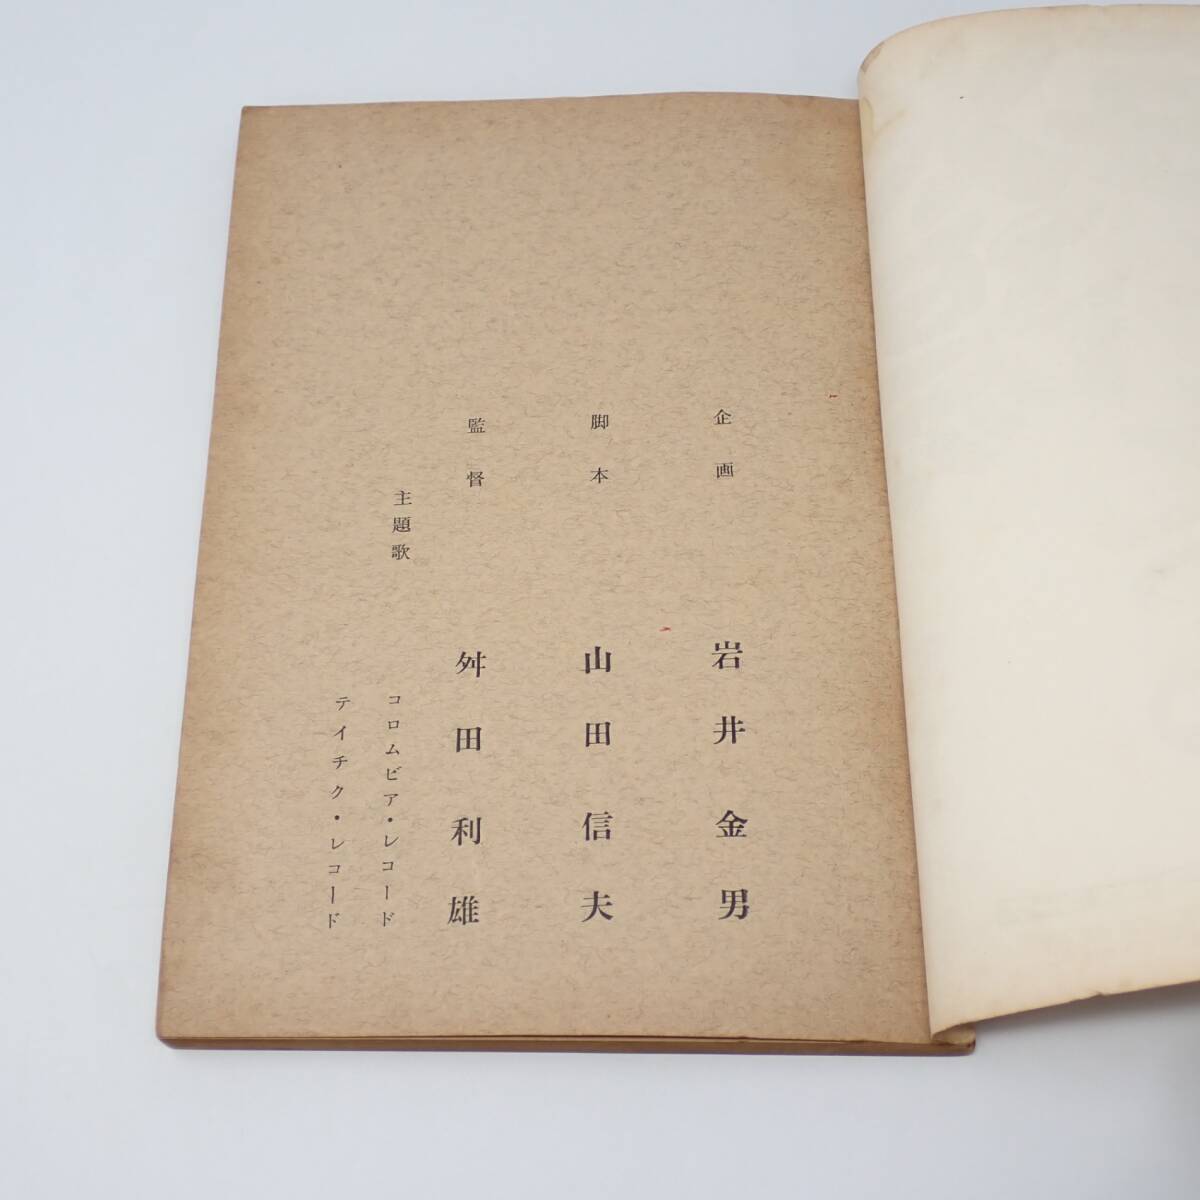 企画 岩井金男
脚本 山田信夫
監督 舛田利雄
主題歌 コロムビア・レコード
テイチク・レコード